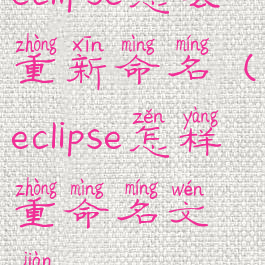 zhòng xīn mìng míng
重新命名（
zěn yàng
eclipse怎样
zhòng mìng míng wén
重命名文
jiàn